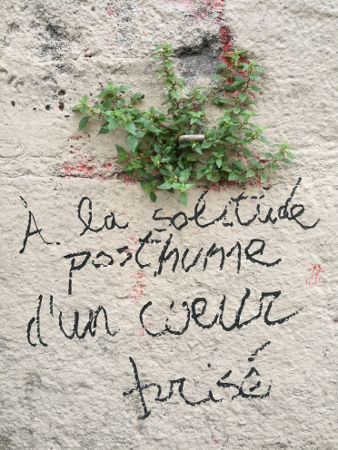 À la solitude
posthume
d'un coeur
brisé